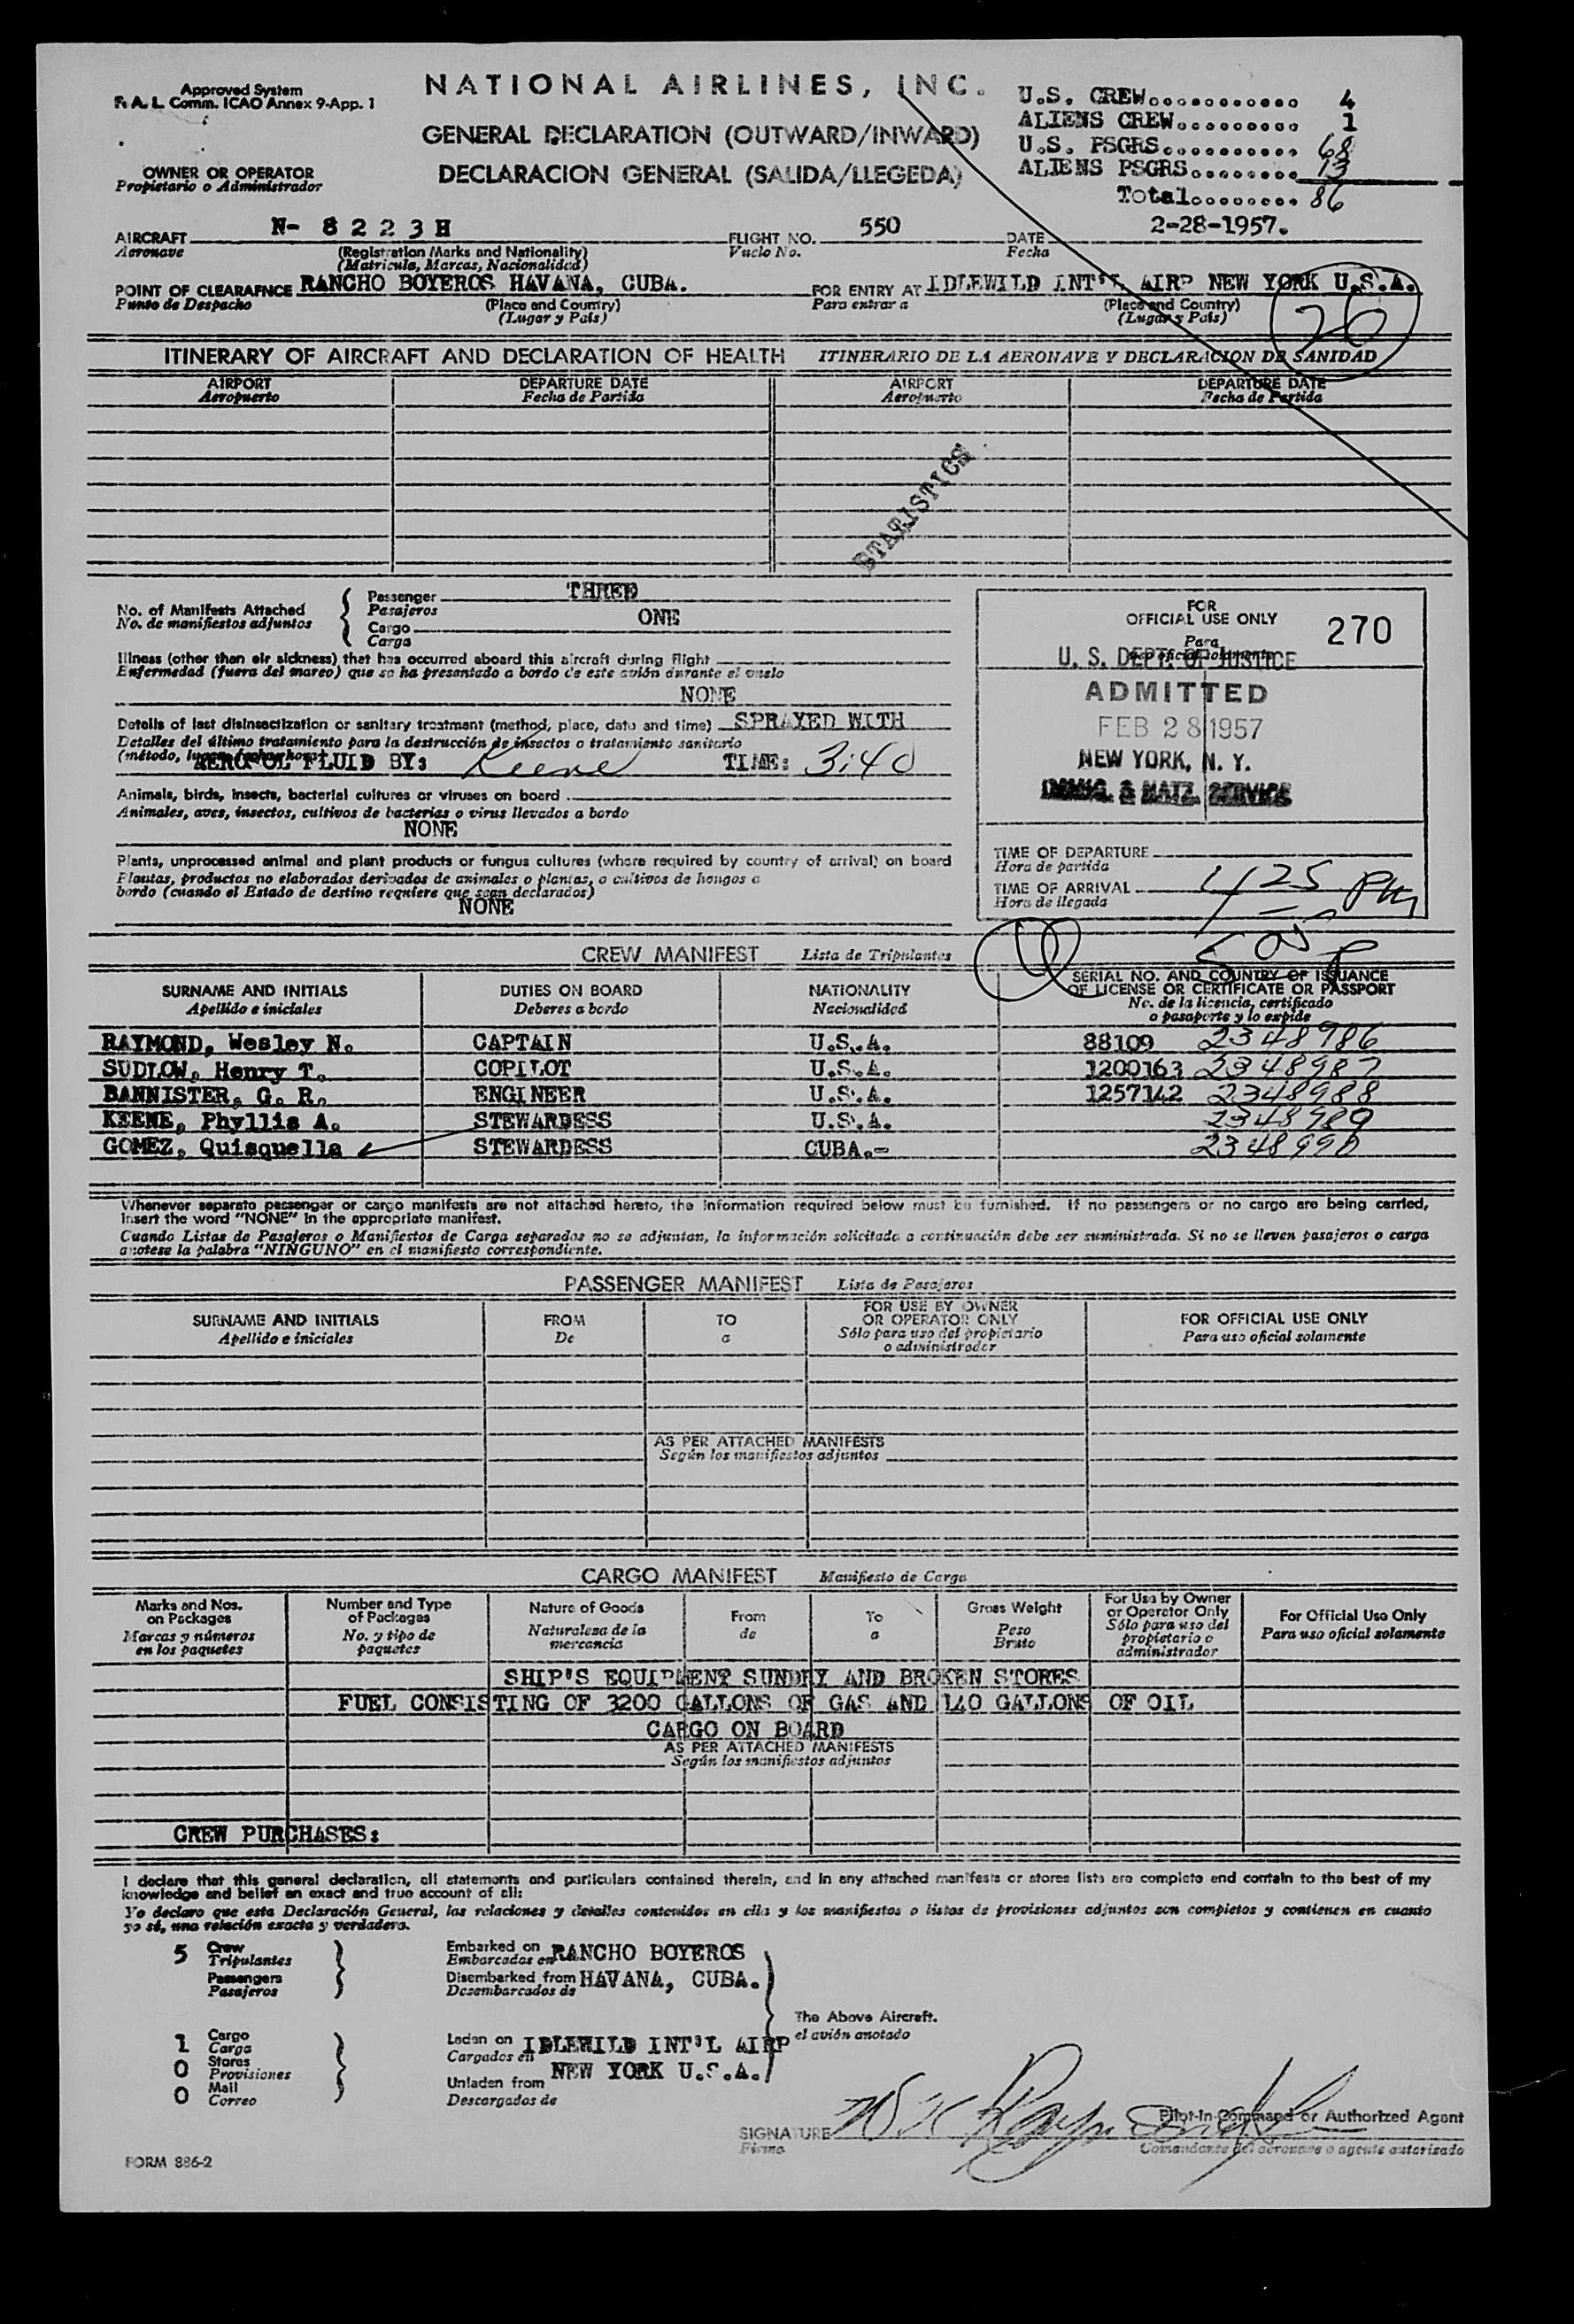 Approved System
F. A. L. Comm. ICAO Annex 9-App. 1
NATIONAL AIRLINES, INC.
GENERAL DECLARATION (OUTWARD/INWARD)
DECLARACION GENERAL (SALIDA/LLEGEDA)
U.S. CREW............ 4
ALIENS CREW.......... 1
U.S. PSGRS........... 68
ALIENS PSGRS......... 13
Total......... 86
OWNER OR OPERATOR
Propietario o Administrador
AIRCRAFT N- 8 2 2 3 H FLIGHT NO. 550 DATE 2-28-1957.
Aeronave (Registration Marks and Nationality) Vuelo No. Fecha
(Matricula, Marcas, Nacionalidad)
POINT OF CLEARAFNCE RANCHO BOYEROS HAVANA, CUBA. FOR ENTRY AT IDLEWILD INT'L AIRP NEW YORK U.S.A.
Punto de Despacho (Place and Country) Para entrar a (Place and Country)
(Lugar y País) (Lugar y País)
20
ITINERARY OF AIRCRAFT AND DECLARATION OF HEALTH ITINERARIO DE LA AERONAVE Y DECLARACION DE SANIDAD
AIRPORT DEPARTURE DATE AIRPORT DEPARTURE DATE
Aeropuerto Fecha de Partida Aeropuerto Fecha de Partida
STATISTICS
No. of Manifests Attached Passenger THREE
No. de manifiestos adjuntos Pasajeros
Cargo ONE
Carga
Illness (other than air sickness) that has occurred aboard this aircraft during flight
Enfermedad (fuera del mareo) que se ha presentado a bordo de este avión durante el vuelo
NONE
Details of last disinsectization or sanitary treatment (method, place, date and time) SPRAYED WITH
Detalles del último tratamiento para la destrucción de insectos o tratamiento sanitario
(método, lugar, fecha y hora)
AEROSOL FLUID BY: Keene TIME: 3:40
Animals, birds, insects, bacterial cultures or viruses on board
Animales, aves, insectos, cultivos de bacterias o virus llevados a bordo
NONE
Plants, unprocessed animal and plant products or fungus cultures (where required by country of arrival) on board
Plantas, productos no elaborados derivados de animales o plantas, o cultivos de hongos a
bordo (cuando el Estado de destino requiere que sean declarados)
NONE
FOR
OFFICIAL USE ONLY 270
Para
uso oficial solamente
U. S. DEPT. OF JUSTICE
ADMITTED
FEB 28 1957
NEW YORK, N. Y.
IMMIG. & NATZ. SERVICE
TIME OF DEPARTURE
Hora de partida
TIME OF ARRIVAL 425 PM
Hora de llegada
CREW MANIFEST Lista de Tripulantes
SURNAME AND INITIALS DUTIES ON BOARD NATIONALITY SERIAL NO. AND COUNTRY OF ISSUANCE
OF LICENSE OR CERTIFICATE OR PASSPORT
Apellido e iniciales Deberes a bordo Nacionalidad No. de la licencia, certificado
o pasaporte y lo expide
RAYMOND, Wesley N. CAPTAIN U.S.A. 88109 2348986
SUDLOW, Henry T. COPILOT U.S.A. 1200163 2348987
BANNISTER, G. R. ENGINEER U.S.A. 1257142 2348988
KEENE, Phyllis A. STEWARDESS U.S.A. 2348989
GOMEZ, Quisquella STEWARDESS CUBA.- 2348990
Whenever separate passenger or cargo manifests are not attached hereto, the information required below must be furnished. If no passengers or no cargo are being carried,
insert the word "NONE" in the appropriate manifest.
Cuando Listas de Pasajeros o Manifiestos de Carga separados no se adjuntan, la información solicitada a continuación debe ser suministrada. Si no se lleven pasajeros o carga
anotese la palabra "NINGUNO" en el manifiesto correspondiente.
PASSENGER MANIFEST Lista de Pasajeros
SURNAME AND INITIALS FROM TO FOR USE BY OWNER OR OPERATOR ONLY FOR OFFICIAL USE ONLY
Apellido e iniciales De a Sólo para uso del propietario o administrador Para uso oficial solamente
AS PER ATTACHED MANIFESTS
Según los manifiestos adjuntos
CARGO MANIFEST Manifiesto de Carga
Marks and Nos. on Packages Number and Type of Packages Nature of Goods From To Gross Weight For Use by Owner or Operator Only For Official Use Only
Marcas y números en los paquetes No. y tipo de paquetes Naturaleza de la mercancia de a Peso Bruto Sólo para uso del propietario o administrador Para uso oficial solamente
SHIP'S EQUIPMENT SUNDRY AND BROKEN STORES
FUEL CONSISTING OF 3200 GALLONS OF GAS AND 140 GALLONS OF OIL
CARGO ON BOARD
AS PER ATTACHED MANIFESTS
Según los manifiestos adjuntos
CREW PURCHASES:
I declare that this general declaration, all statements and particulars contained therein, and in any attached manifests or stores lists are complete and contain to the best of my
knowledge and belief an exact and true account of all:
Yo declaro que esta Declaración General, las relaciones y detalles contenidos en ella y los manifiestos o listas de provisiones adjuntos son completos y contienen en cuanto
yo sé, una relación exacta y verdadera.
5 Crew Embarked on RANCHO BOYEROS
Tripulantes Embarcados en
Passengers Disembarked from HAVANA, CUBA.
Pasajeros Desembarcados de
The Above Aircraft.
el avión anotado
1 Cargo Laden on IDLEWILD INT'L AIRP
Carga Cargados en
0 Stores NEW YORK U.S.A.
Provisiones
0 Mail Unladen from
Correo Descargados de
SIGNATURE Pilot-in-Command or Authorized Agent
Firma Comandante del aeronave o agente autorizado
FORM 886-2